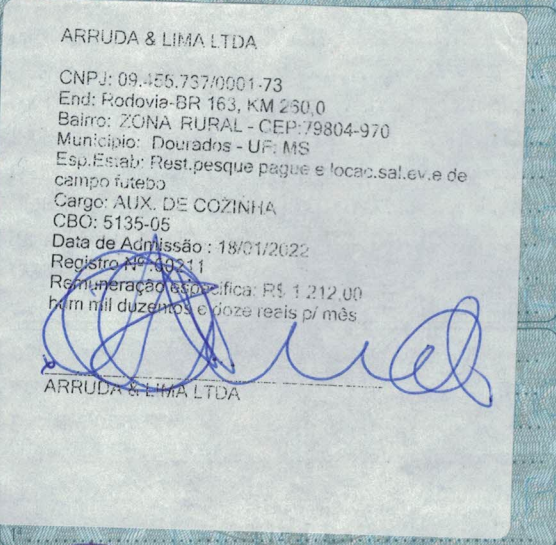 ARRUDA & LIMA LTDA
CNPJ: 09.455.737/0001-73
End: Rodovia-BR 163, KM 260,0
Bairro: ZONA RURAL - CEP:79804-970
Municipio: Dourados - UF: MS
Esp.Estab: Rest.pesque pague e locac.sal.ev.e de
campo futebo
Cargo: AUX. DE COZINHA
CBO: 5135-05
Data de Admissão : 18/01/2022
Registro Nº 00211
Remuneração especifica: R$ 1.212,00
hum mil duzentos e doze reais p/ mês
ARRUDA & LIMA LTDA